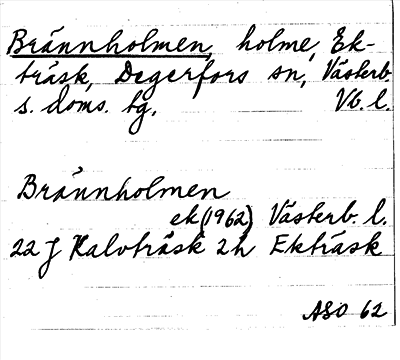 Brännholmen, holme, Ek-
träsk, Degerfors sn, Västerb.
s. doms. tg. Vb. l.
Brännholmen
ek (1962) Västerb. l.
22 J Kalvträsk 2h Ekträsk
ASO 62